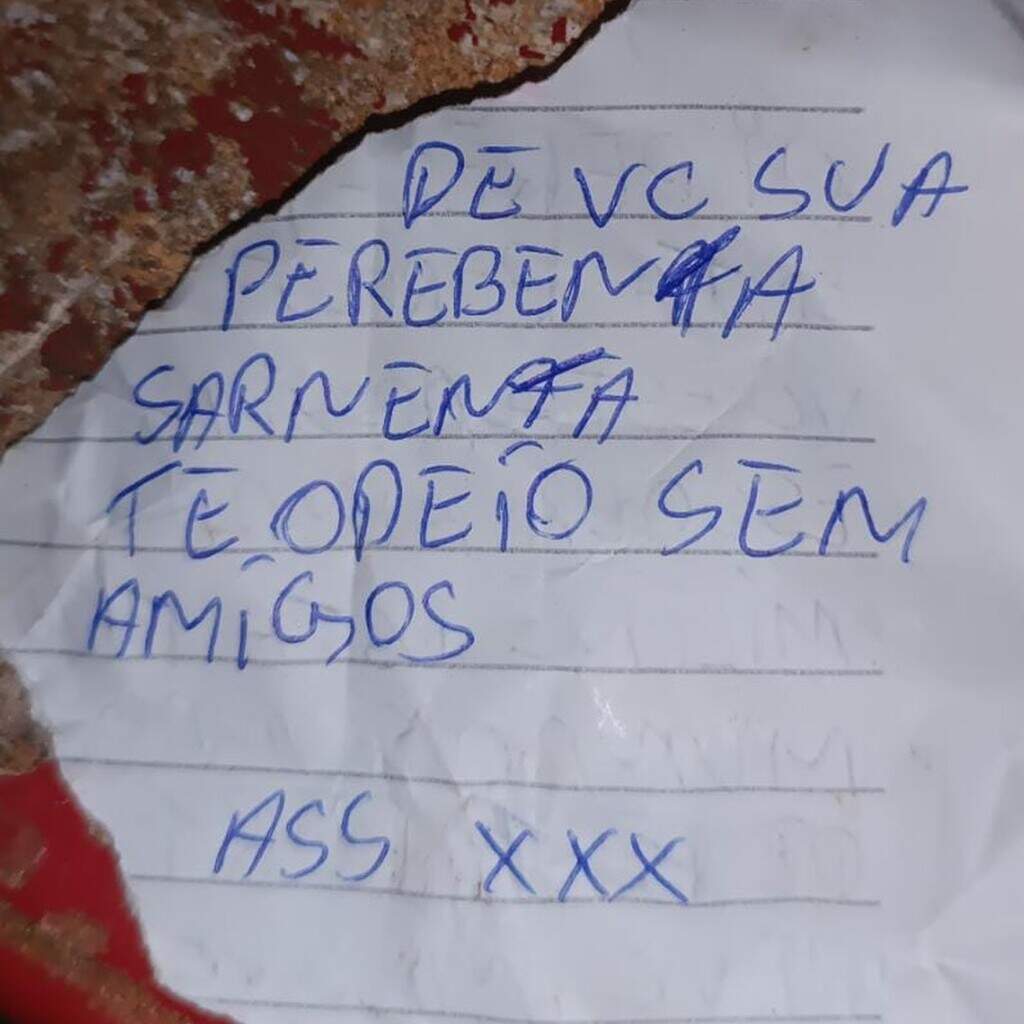 DE VC SUA
PEREBENTA
SARNENTA
TE ODEIO SEM
AMIGOS
ASS XXX